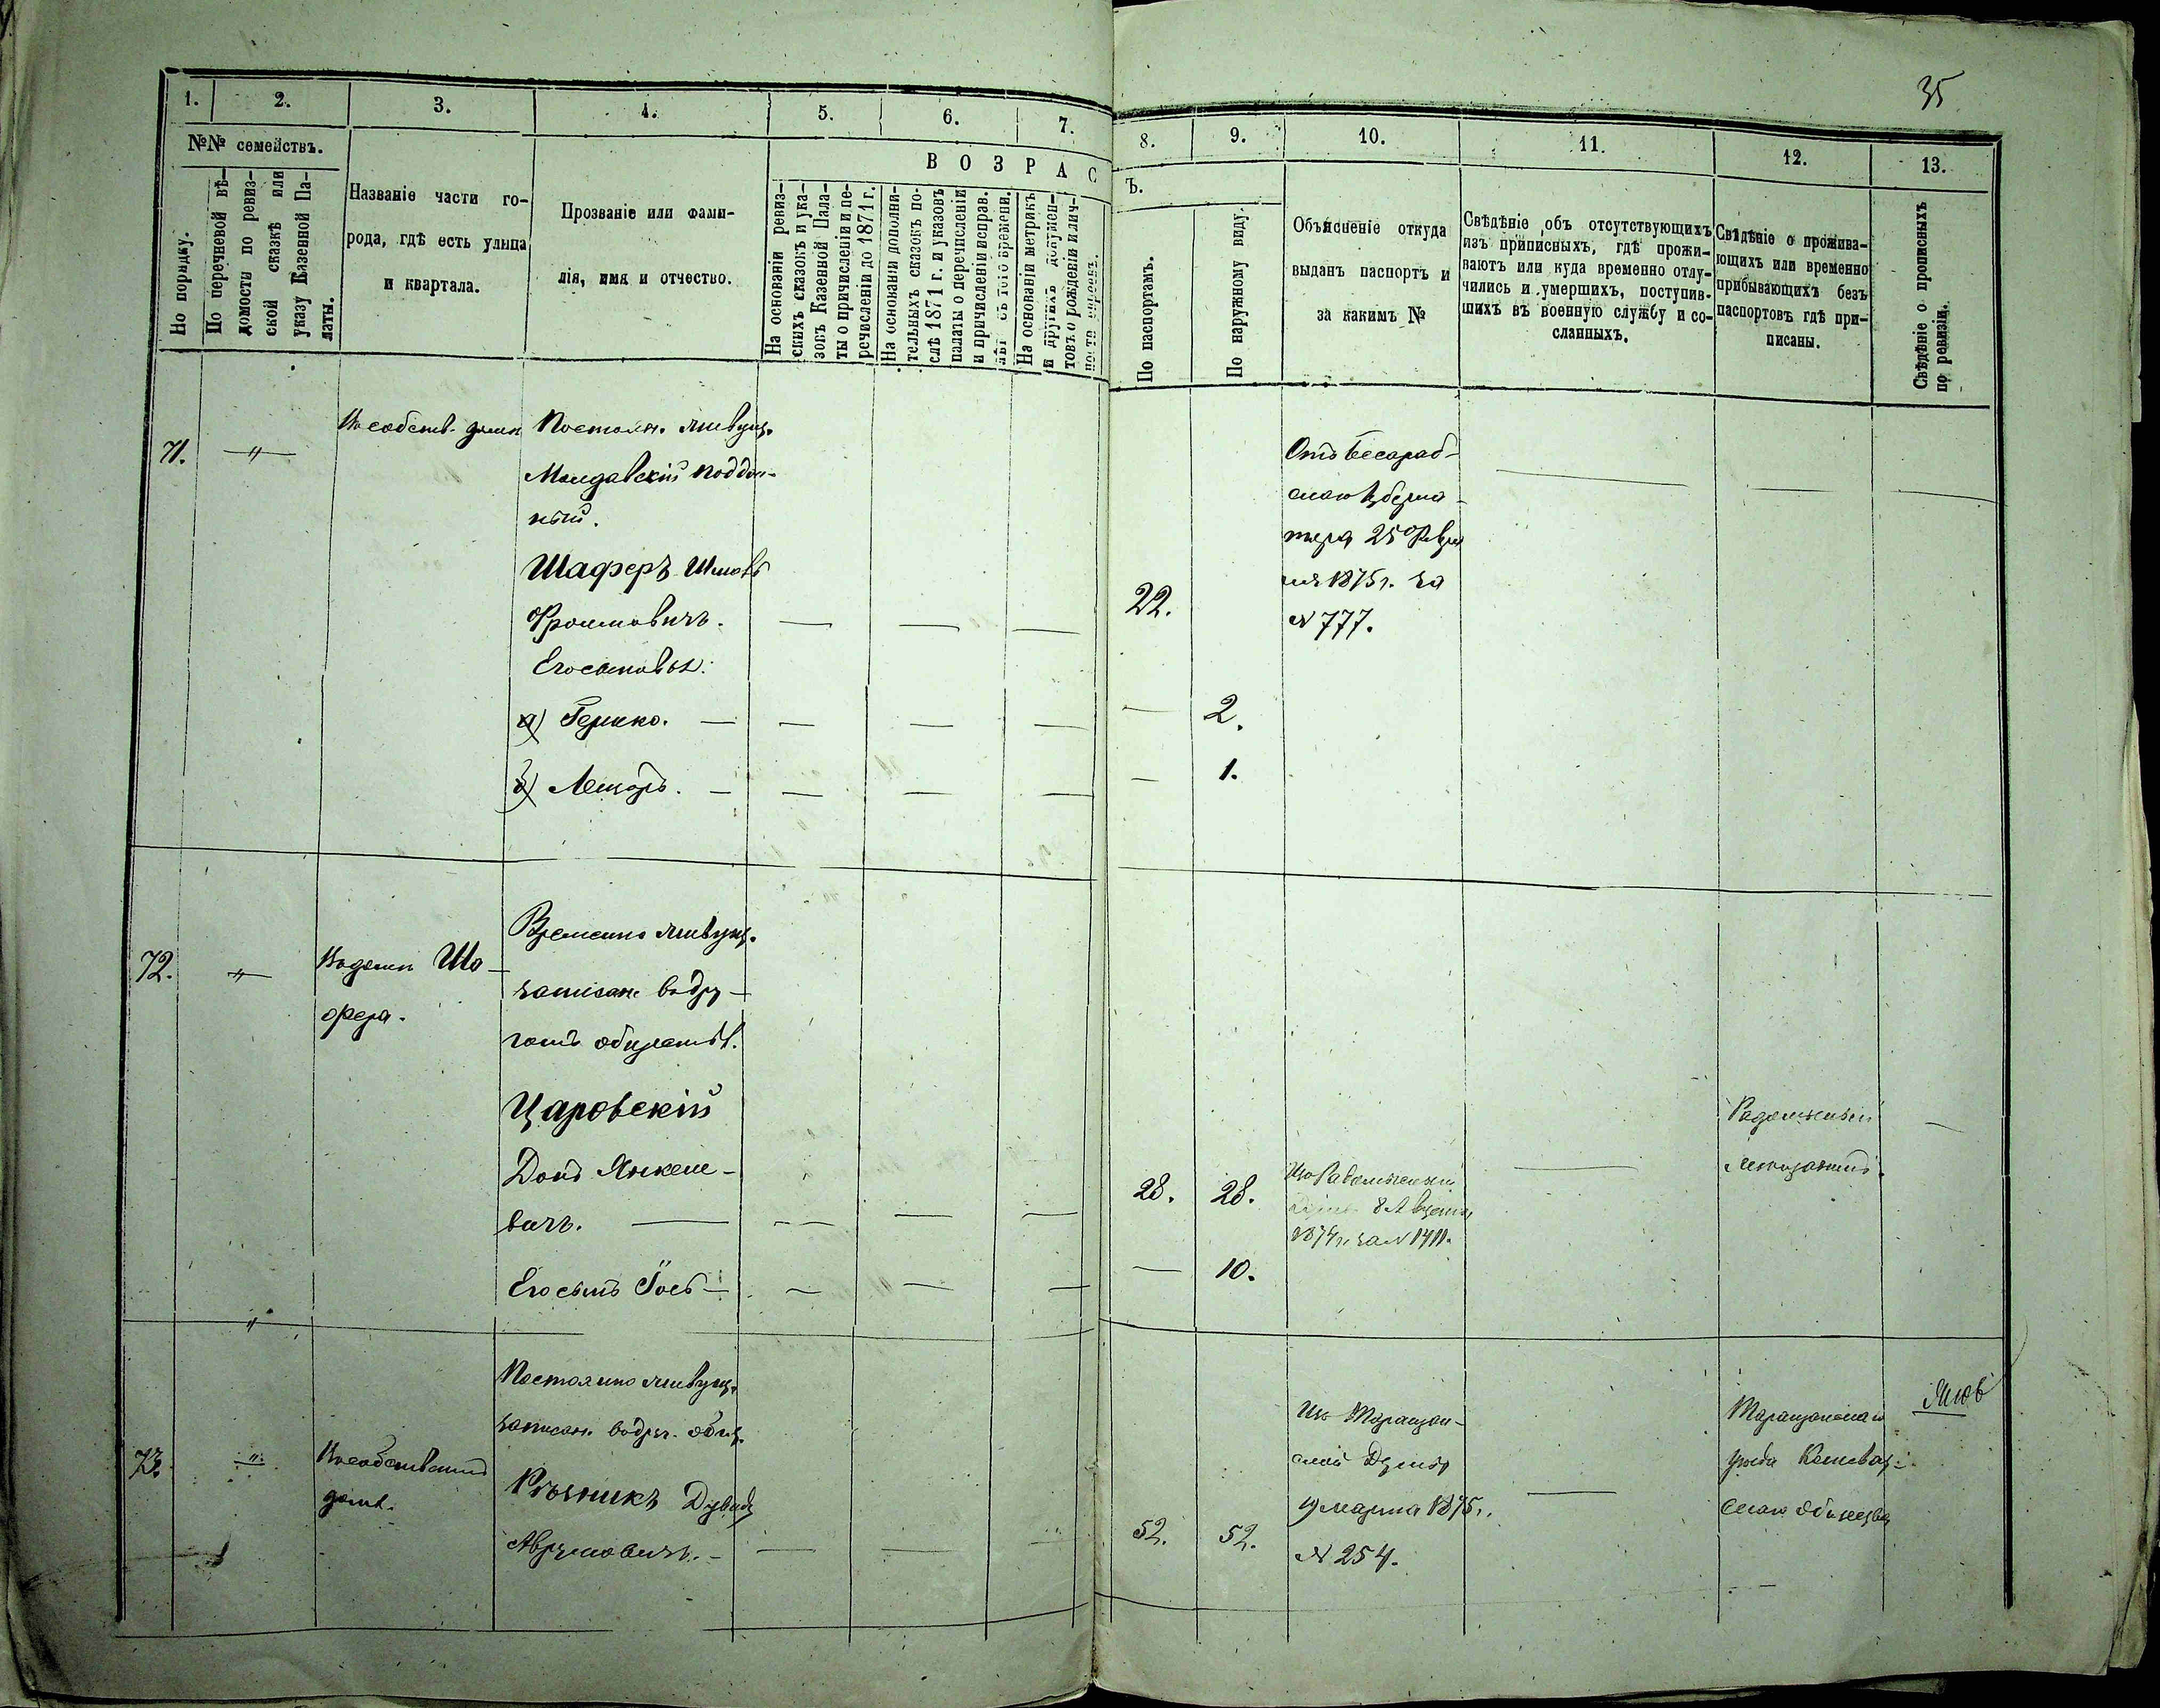 35
1. 2. 3. 4. 5. 6. 7. 8. 9. 10. 11. 12. 13.
№№ семействъ.
По порядку.
По перечневой вѣ-
домости по ревиз-
ской сказкѣ или
указу Казенной Па-
латы.
Названіе части го-
рода, гдѣ есть улица
и квартала.
Прозваніе или фами-
лія, имя и отчество.
ВОЗРАС
На основаніи ревиз-
скихъ сказокъ и ука-
зовъ Казенной Пала-
ты о причисленіи и пе-
речисленіи до 1871 г.
На основаніи дополни-
тельныхъ сказокъ по-
слѣ 1871 г. и указовъ
палаты о перечисленіи
и причисленіи исправ.
лѣт съ того времени.
На основаніи метрикъ
и другихъ докумен-
товъ о рожденіи и лич-
Ъ.
По паспортамъ.
По наружному виду.
Объясненіе откуда
выданъ паспортъ и
за какимъ №
Свѣдѣніе объ отсутствующихъ
изъ приписныхъ, гдѣ прожи-
ваютъ или куда временно отлу-
чились и умершихъ, поступив-
шихъ въ военную службу и со-
сланныхъ.
Свѣдѣніе о прожива-
ющихъ или временно
прибывающихъ безъ
паспортовъ гдѣ при-
писаны.
Свѣдѣніе о прописныхъ
по ревизіи.
71. "
Въ собств. домѣ
Постоян. живущ.
Молдавскій поддан-
ный.
Шаферъ
Фроимовичъ.
Его сыновья:
а) Гершко.
б)
22.
2.
1.
Отъ Бесараб-
скаго Губерна-
тора 25 Февра
ля 1875 г. за
№ 777.
72. "
Въ домѣ Ша-
фера.
Временно живущ.
записан. въ дру-
гомъ обществ.
Царовскій
Янкеле-
вичъ.
Его сынъ
28. 28.
10.
8 Августа
1874 г. за № 1411.
"
73. "
Въ собственномъ
домѣ.
Постоянно живущ.
записан. въ друг. общ.
Рѣзникъ Дувидъ
Аврумовичъ.
52. 52.
Изъ Таращан-
ской Думы
19 марта 1875 г.
№ 254.
Таращанскаго
уѣзда
скаго общества